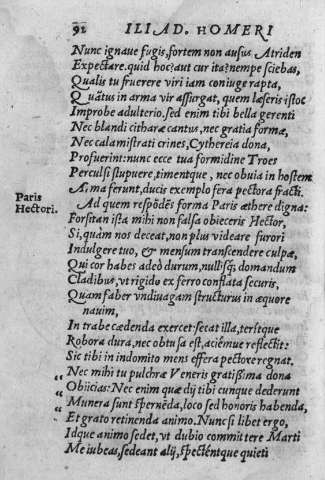 92 ILIAD. HOMERI
Nunc ignaue fugis, fortem non ausus Atriden
Expectare. quid hoc? aut cur ita? nempe sciebas,
Qualis tu fruerere viri iam coniuge rapta,
Quātus in arma vir assurgat, quem læseris istoc
Improbe adulterio. sed enim tibi bella gerenti
Nec blandi citharæ cantus, nec gratia formæ,
Nec calamistrati crines, Cythereia dona,
Profuerint: nunc ecce tua formidine Troes
Perculsi stupuere, timentque, nec obuia in hostem
Arma ferunt, ducis exemplo fera pectora fracti.
Paris Hectori.
Ad quem respōdēs forma Paris æthere digna:
Forsitan ista mihi non falsa obieceris Hector,
Si, quàm nos deceat, non plus videare furori
Indulgere tuo, & mensum transcendere culpæ,
Qui cor habes adeò durum, nullisq; domandum
Cladibus, vt rigido ex ferro conflata securis,
Quam faber vndiuagam structurus in æquore
nauim,
In trabe cædenda exercet: secat illa, teritque
Robora dura, nec obtusa est, aciémue reflectit:
Sic tibi in indomito mens effera pectore regnat.
„ Nec mihi tu pulchræ Veneris gratissima dona
„ Obiicias: Nec enim quæ dij tibi cunque dederunt
„ Munera sunt spernēda, loco sed honoris habenda,
„ Et grato retinenda animo. Nunc si libet ergo,
Idque animo sedet, vt dubio committere Marti
Me iubeas, sedeant alij, spectentque quieti